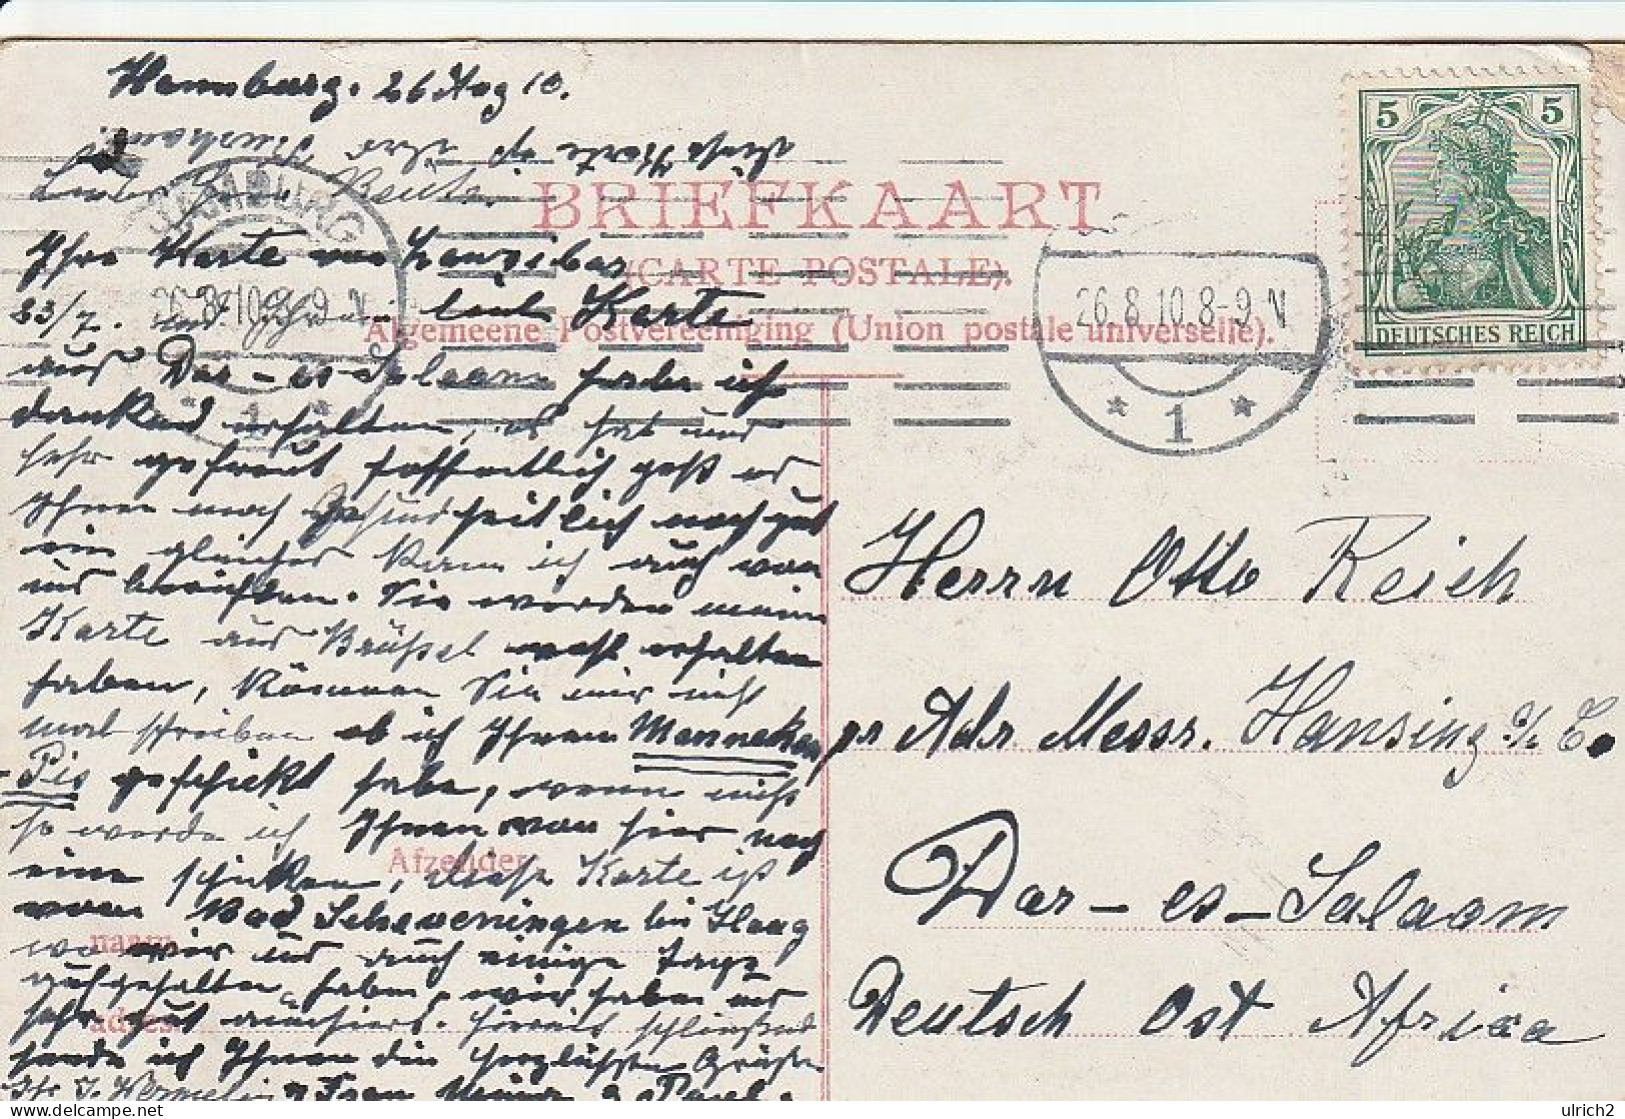 Hamburg. 26 Aug 10.
Diese Karte ist aus
BRIEFKAART
(CARTE POSTALE).
Algemeene Postvereeniging (Union postale universelle).
HAMBURG
1
26.8.10.8-9.N
* 1 *
5 5
DEUTSCHES REICH
Ihre Karte von Zanzibar
23/7. und Karte
aus Dar-es-Salaam habe ich
dankend erhalten, es hat uns
sehr gefreut hoffentlich geht es
Ihnen noch Gesundheitlich noch gut
ein gleiches kann ich auch von
uns berichten. Sie werden meine
Karte aus Brüssel wohl erhalten
haben, können Sie mir nicht
mal schreiben ob ich Ihnen Manneken
-Pis geschickt habe, wenn nicht
so werde ich Ihnen von hier noch
eine schicken, diese Karte ist
vom Bad Scheveningen bei Haag
wo wir uns auch einige Tage
aufgehalten haben, wir haben uns
sehr gut amüsiert. Hiermit schließend
sende ich Ihnen die herzlichsten Grüße
Ihr J. & Frau & Paul.
Afzender
naam
adres
Herrn Otto Reich
pr Adr. Messr. Hansing & Co
Dar-es-Salaam
Deutsch Ost Africa
delcampe.net
ulrich2